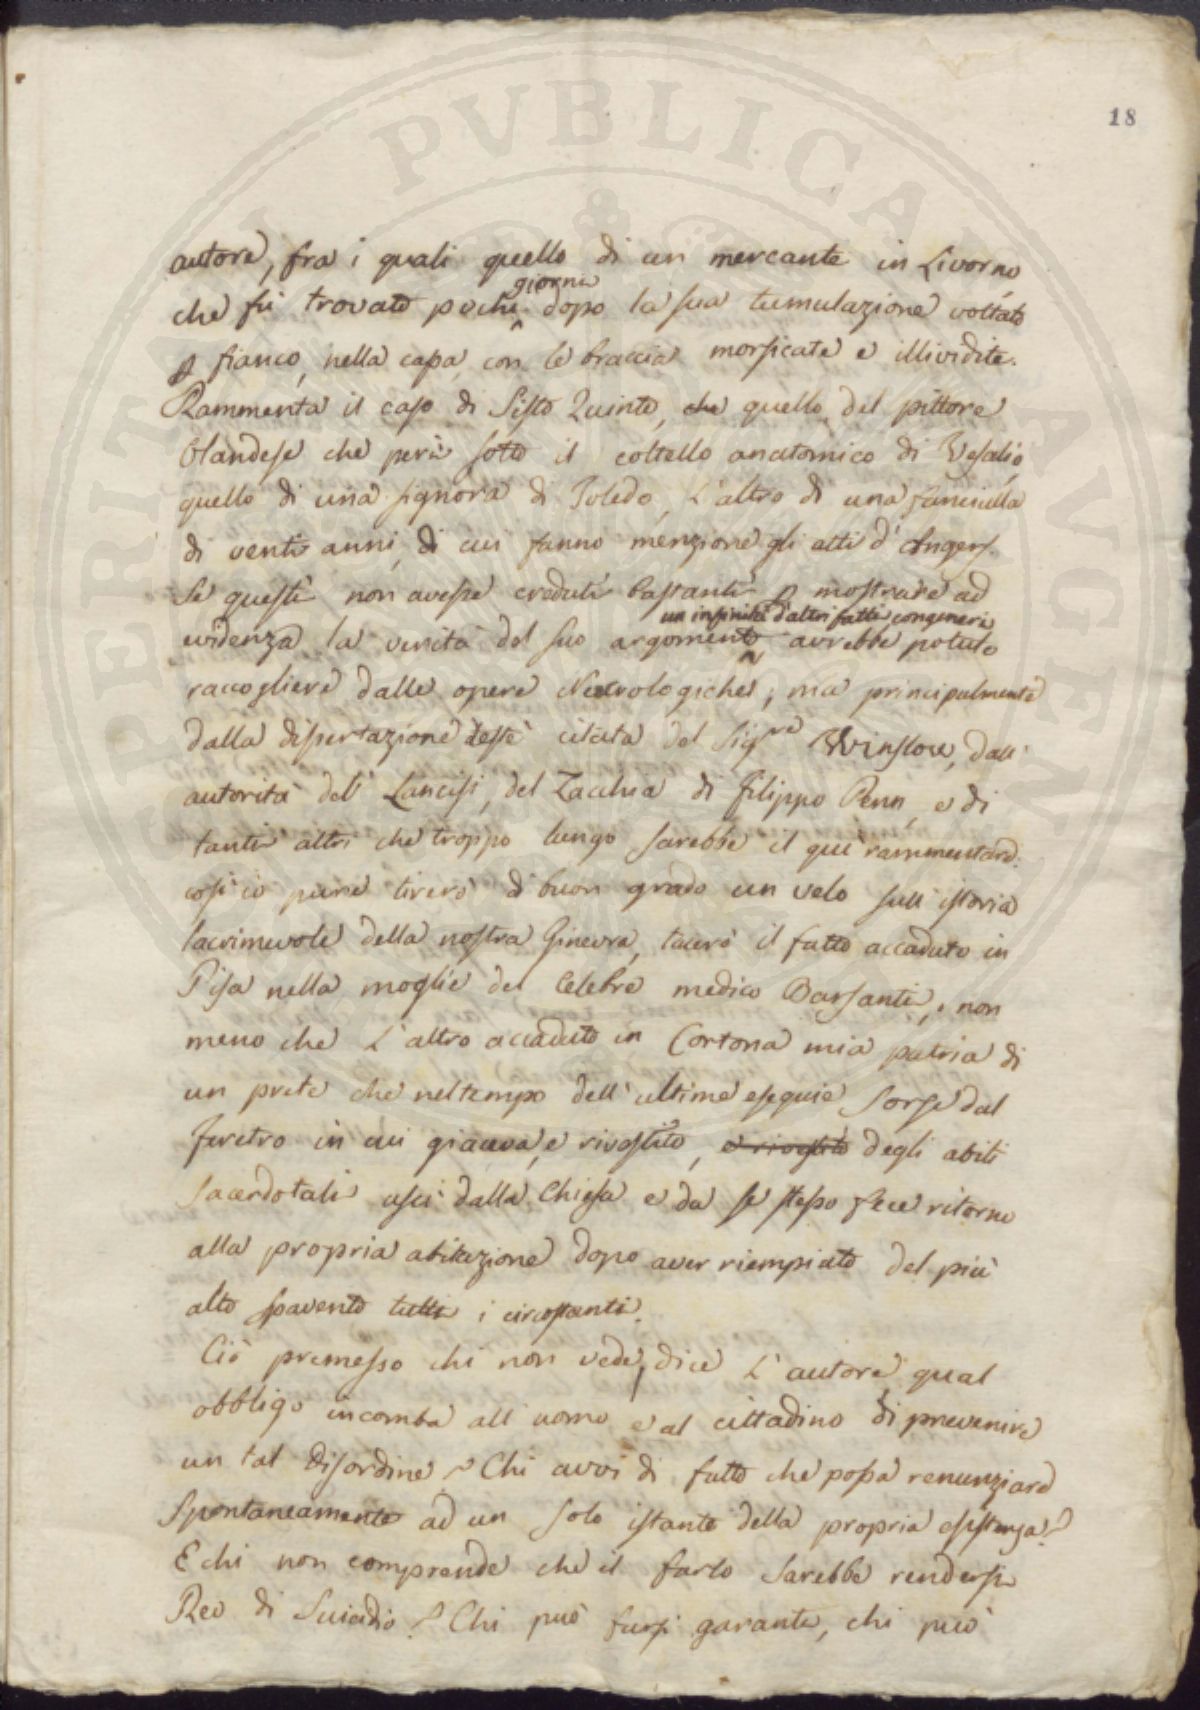 18
autore, fra i quali quello di un mercante in Livorno
che fù trovato pochi giorni dopo la sua tumulazione voltato
fianco, nella capa, con le braccia morsicate e illividite.
Rammenta il caso di Sisto Quinto, che quello del pittore
Olandese che perì sotto il coltello anatomico di Vesalio,
quello di una signora di Toledo, L'altro di una fanciulla
di venti anni, di cui fanno menzione gli atti d'Angers.
Se questi non avesse creduti bastanti a mostrare ad
un infinità d'altri fatti congeneri
evidenza la verità del suo argomento, avrebbe potuto
raccogliere dalle opere Necrologiche, ma principalmente
dalla dissertazione testè citata del Sigre Winslow, dall'
autorità del Lancisi, del Zacchia di Filippo Penn, e di
tanti altri che troppo lungo sarebbe il quì rammentare.
così io pure tirerò di buon grado un velo sull'istoria
lacrimevole della nostra Ginevra, tacerò il fatto accaduto in
Pisa nella moglie del Celebre medico Barsanti, non
meno che L'altro accaduto in Cortona mia patria di
un prete che nel tempo dell'ultime esequie sorse dal
feretro in cui giaceva, e rivestito, e rivestito degli abiti
sacerdotali uscì dalla Chiesa e da se stesso fece ritorno
alla propria abitazione dopo aver riempiato del più
alto spavento tutti i circostanti.
Ciò premesso chi non vede, dice L'autore, qual
obbligo incomba all'uomo, e al cittadino di prevenire
un tal disordine? Chi avvi di fatto che possa renunziare
spontaneamente ad un solo istante della propria esistenza?
E chi non comprende che il farlo sarebbe rendersi
Reo di Suicidio? Chi può farsi garante, chi può